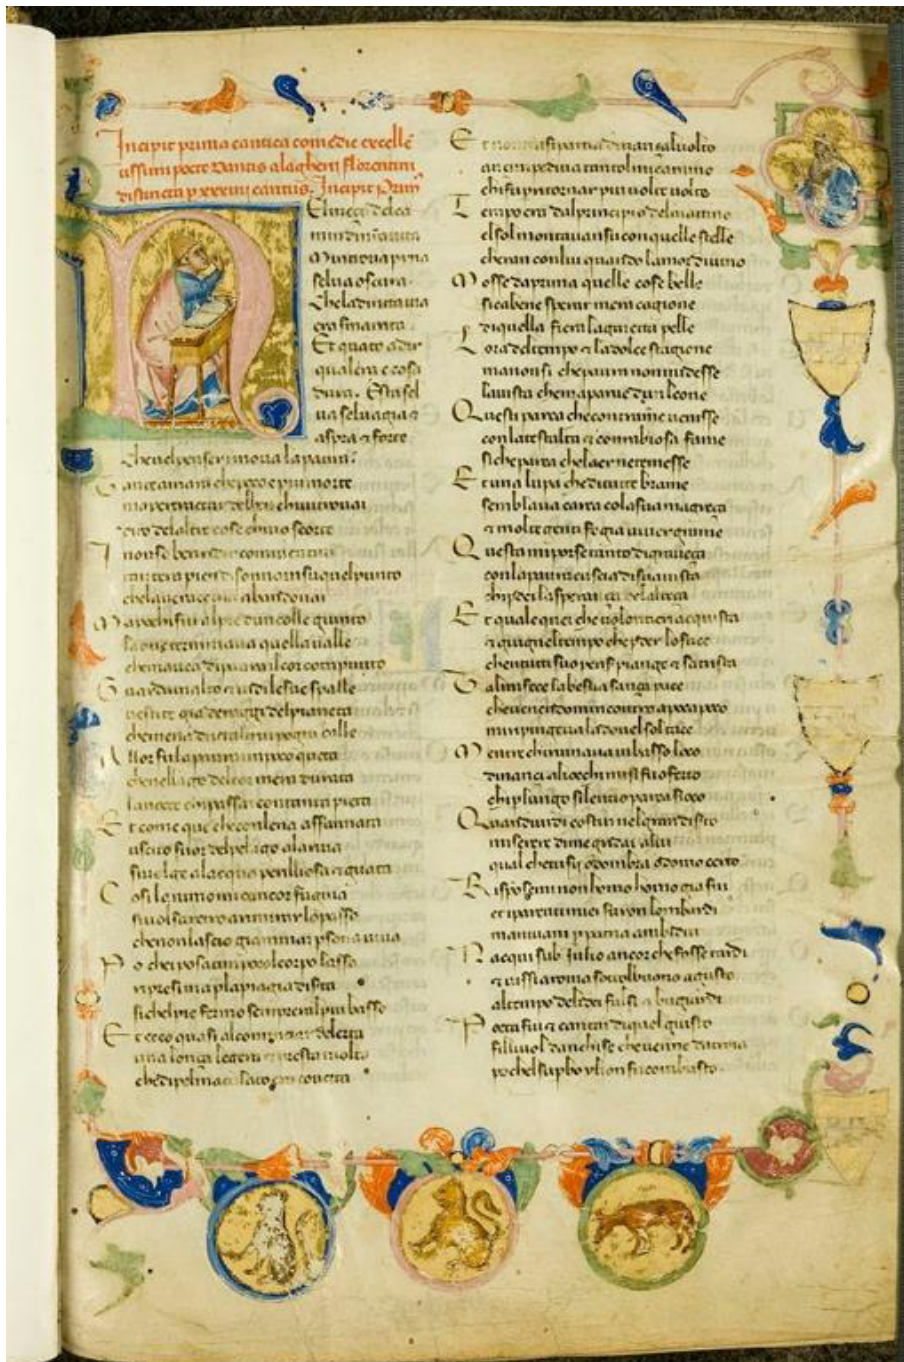 Incipit prima cantica comedie excellē
tissimi poete Dantis alagherii florentini
distincta p xxxiiii cantus. Incipit Prim
El meço delca
mindinr̃a uita
Mi ritroua p una
selua oscura.
Chela diricta uia
era smarrita.
Et quāto adir
qual era e cosa
dura. Esta sel
ua seluagia &
aspra & forte
Che nel penser rinoua la paura.
Tant e amara che poco e piu morte
ma per tractar del ben chiui trouai
diro delaltre cose chiuo scorte
I non so ben ridir comio uentrai
tant era pien di sonno in su quel punto
che la uerace uia abandonai
Ma poi chi fui al pie dun colle giunto
la oue terminaua quella ualle
che mauea di paura il cor compunto
Guardai in alto & uidi le sue spalle
uestite gia de raggi del pianeta
che mena dricto altrui p ogni calle
Allor fu la paura un poco queta
che nel lago del cor mera durata
la nocte chi passai con tanta pieta
Et come quei che con lena affannata
uscito fuor del pelago alariua
si uolge alacqua perilliosa & guata
Cosi lanimo mi cancor fugiua
si uolse aretro a rimirar lo passo
che non lascio giammai psona uiua
Po chei posato un poco il corpo lasso
ripresi uia p la piagia diserta
si chel pie fermo sempre era l piu basso
Et ecco quasi al cominciar delerta
una lonça legera & presta molto
che di pel maculato era couerta
Et non mi si partia dinançal uolto
anci mpediua tanto l mi camino
chi fu p ritornar piu uolte uolto
Tempo era dal principio del mattino
el sol montaua n su con quelle stelle
cheran con lui quando lamor diuino
Mosse da prima quelle cose belle
si ca bene sperar mera cagione
di quella fiera la gaietta pelle
Lora del tempo & la dolce stagione
ma non si che paura non mi desse
la uista che maparue dun leone
Questi parea che contra me uenisse
con la test alta & con rabiosa fame
si che parea che laer ne temesse
Et una lupa che di tutte brame
sembiaua carca cola sua magreça
& molte genti fe gia uiuer grame
Questa mi porse tanto di graueça
con la paura cuscia di sua uista
chi pdei la sperança delalteça
Et quale quei che uolontieri acquista
& giugne l tempo che pder lo face
chen tutti suo pens piange & satrista
Tal mi fece la bestia sança pace
che uenendomi incontro a poco a poco
mi ripingeua la doue l sol tace
Mentre chi rouinaua in basso loco
dinançi aliocchi mi si fu offerto
chi p lungo silentio parea fioco
Quando uidi costui nel gran diserto
miserere di me gridai a lui
qual che tu sii od ombra od omo certo
Risposemi non homo homo gia fui
et i parenti miei furon lombardi
mantuani p patria ambidui
Nacqui sub Julio ancor che fosse tardi
& uissi a roma sotto l buono agusto
al tempo deli dei falsi & bugiardi
Poeta fui & cantai di quel giusto
figliuol danchise che uenne da troia
po chel supbo ylion fu combusto.